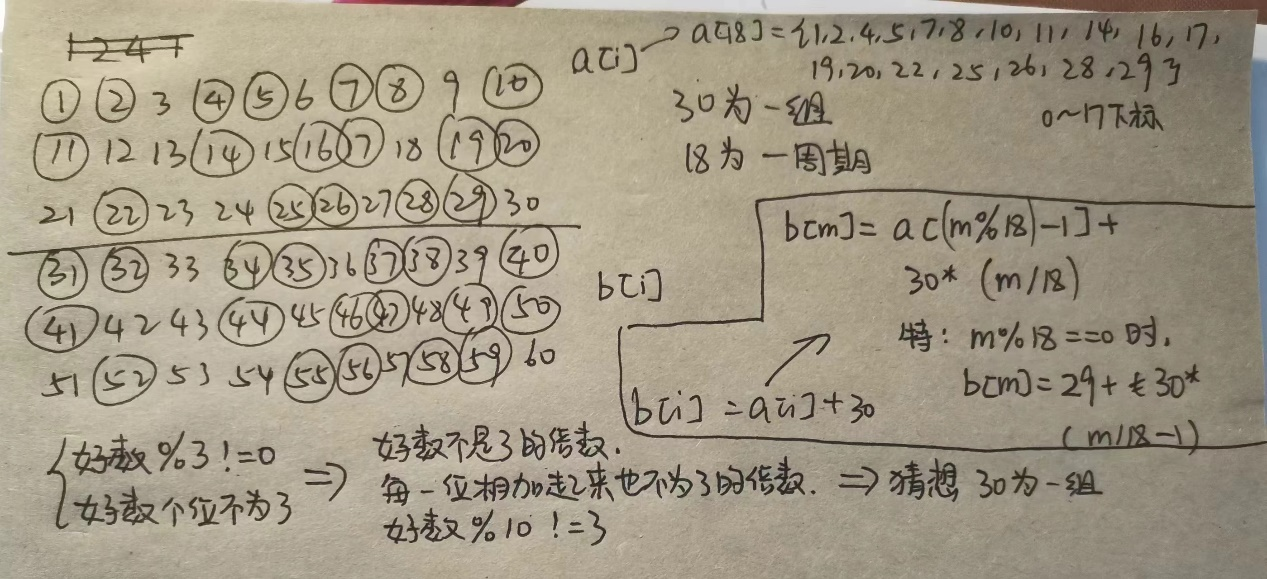 1 2 4 7
① ② 3 ④ ⑤ 6 ⑦ ⑧ 9 ⑩
⑪ 12 13 ⑭ 15 ⑯ ⑰ 18 ⑲ ⑳
21 ㉒ 23 24 ㉕ ㉖ 27 ㉘ ㉙ 30
㉛ ㉜ 33 ㉞ ㉟ 36 ㊲ ㊳ 39 ㊵
㊶ 42 43 ㊹ 45 ㊻ ㊼ 48 ㊾ ㊿
51 52 53 54 55 56 57 58 59 60
a[i] → a[18] = {1,2,4,5,7,8,10,11,14,16,17,
19,20,22,25,26,28,29}
30为一组
0~17下标
18为一周期
b[i]
b[i] = a[i]+30
b[m] = a[(m%18)-1]+
30* (m/18)
特: m%18==0时,
b[m] = 29+30*
(m/18-1)
{好数%3!=0
好数个位不为3
⇒
好数不是3的倍数.
每一位相加起来也不为3的倍数. ⇒ 猜想 30为一组
好数%10!=3